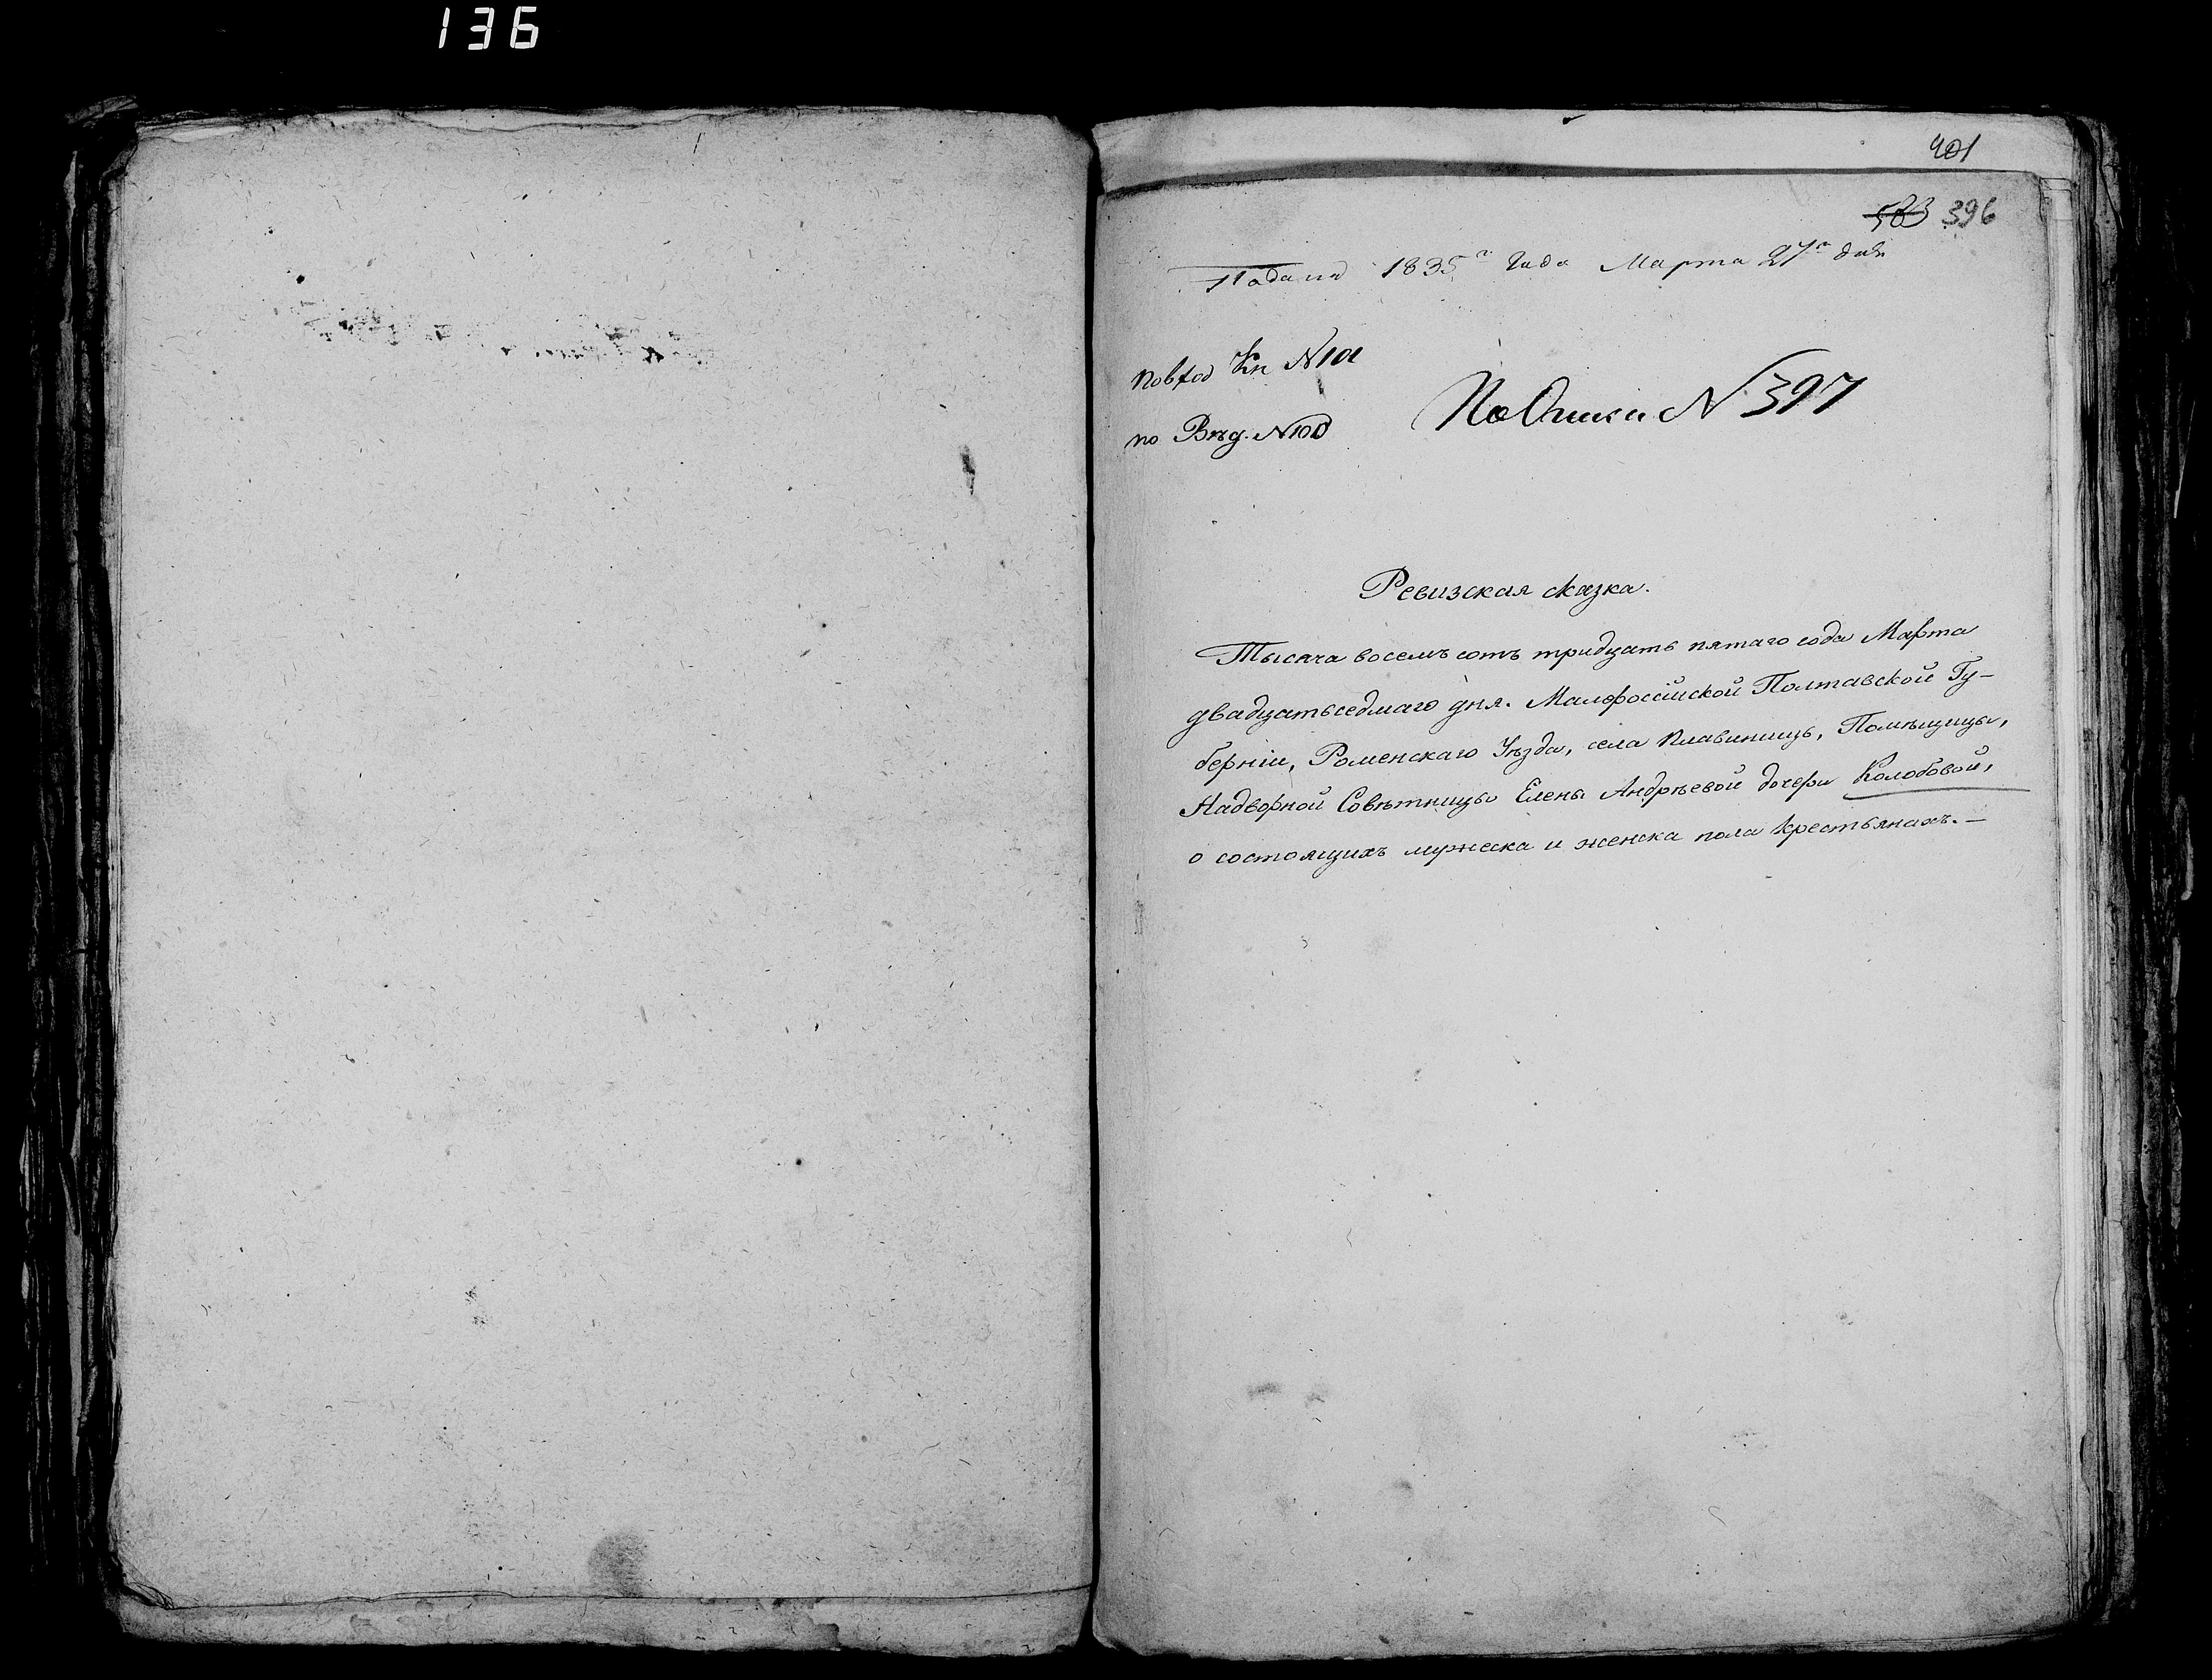 136
401
583 396
Подана 1835го Года Марта 27го дня
по вход Кн №101
по Вѣд. №100
По Описи №397
Ревизская сказка.
Тысяча восемъ сотъ тридцать пятаго года Марта
двадцатьседмаго дня. Малоросiйской Полтавской Гу-
бернiи, Роменскаго Уѣзда, села Плавинищъ, Помѣщицы,
Надворной Совѣтницы Елены Андрѣевой дочери Колобовой,
о состоящихъ мужеска и женска пола крестьянахъ.—